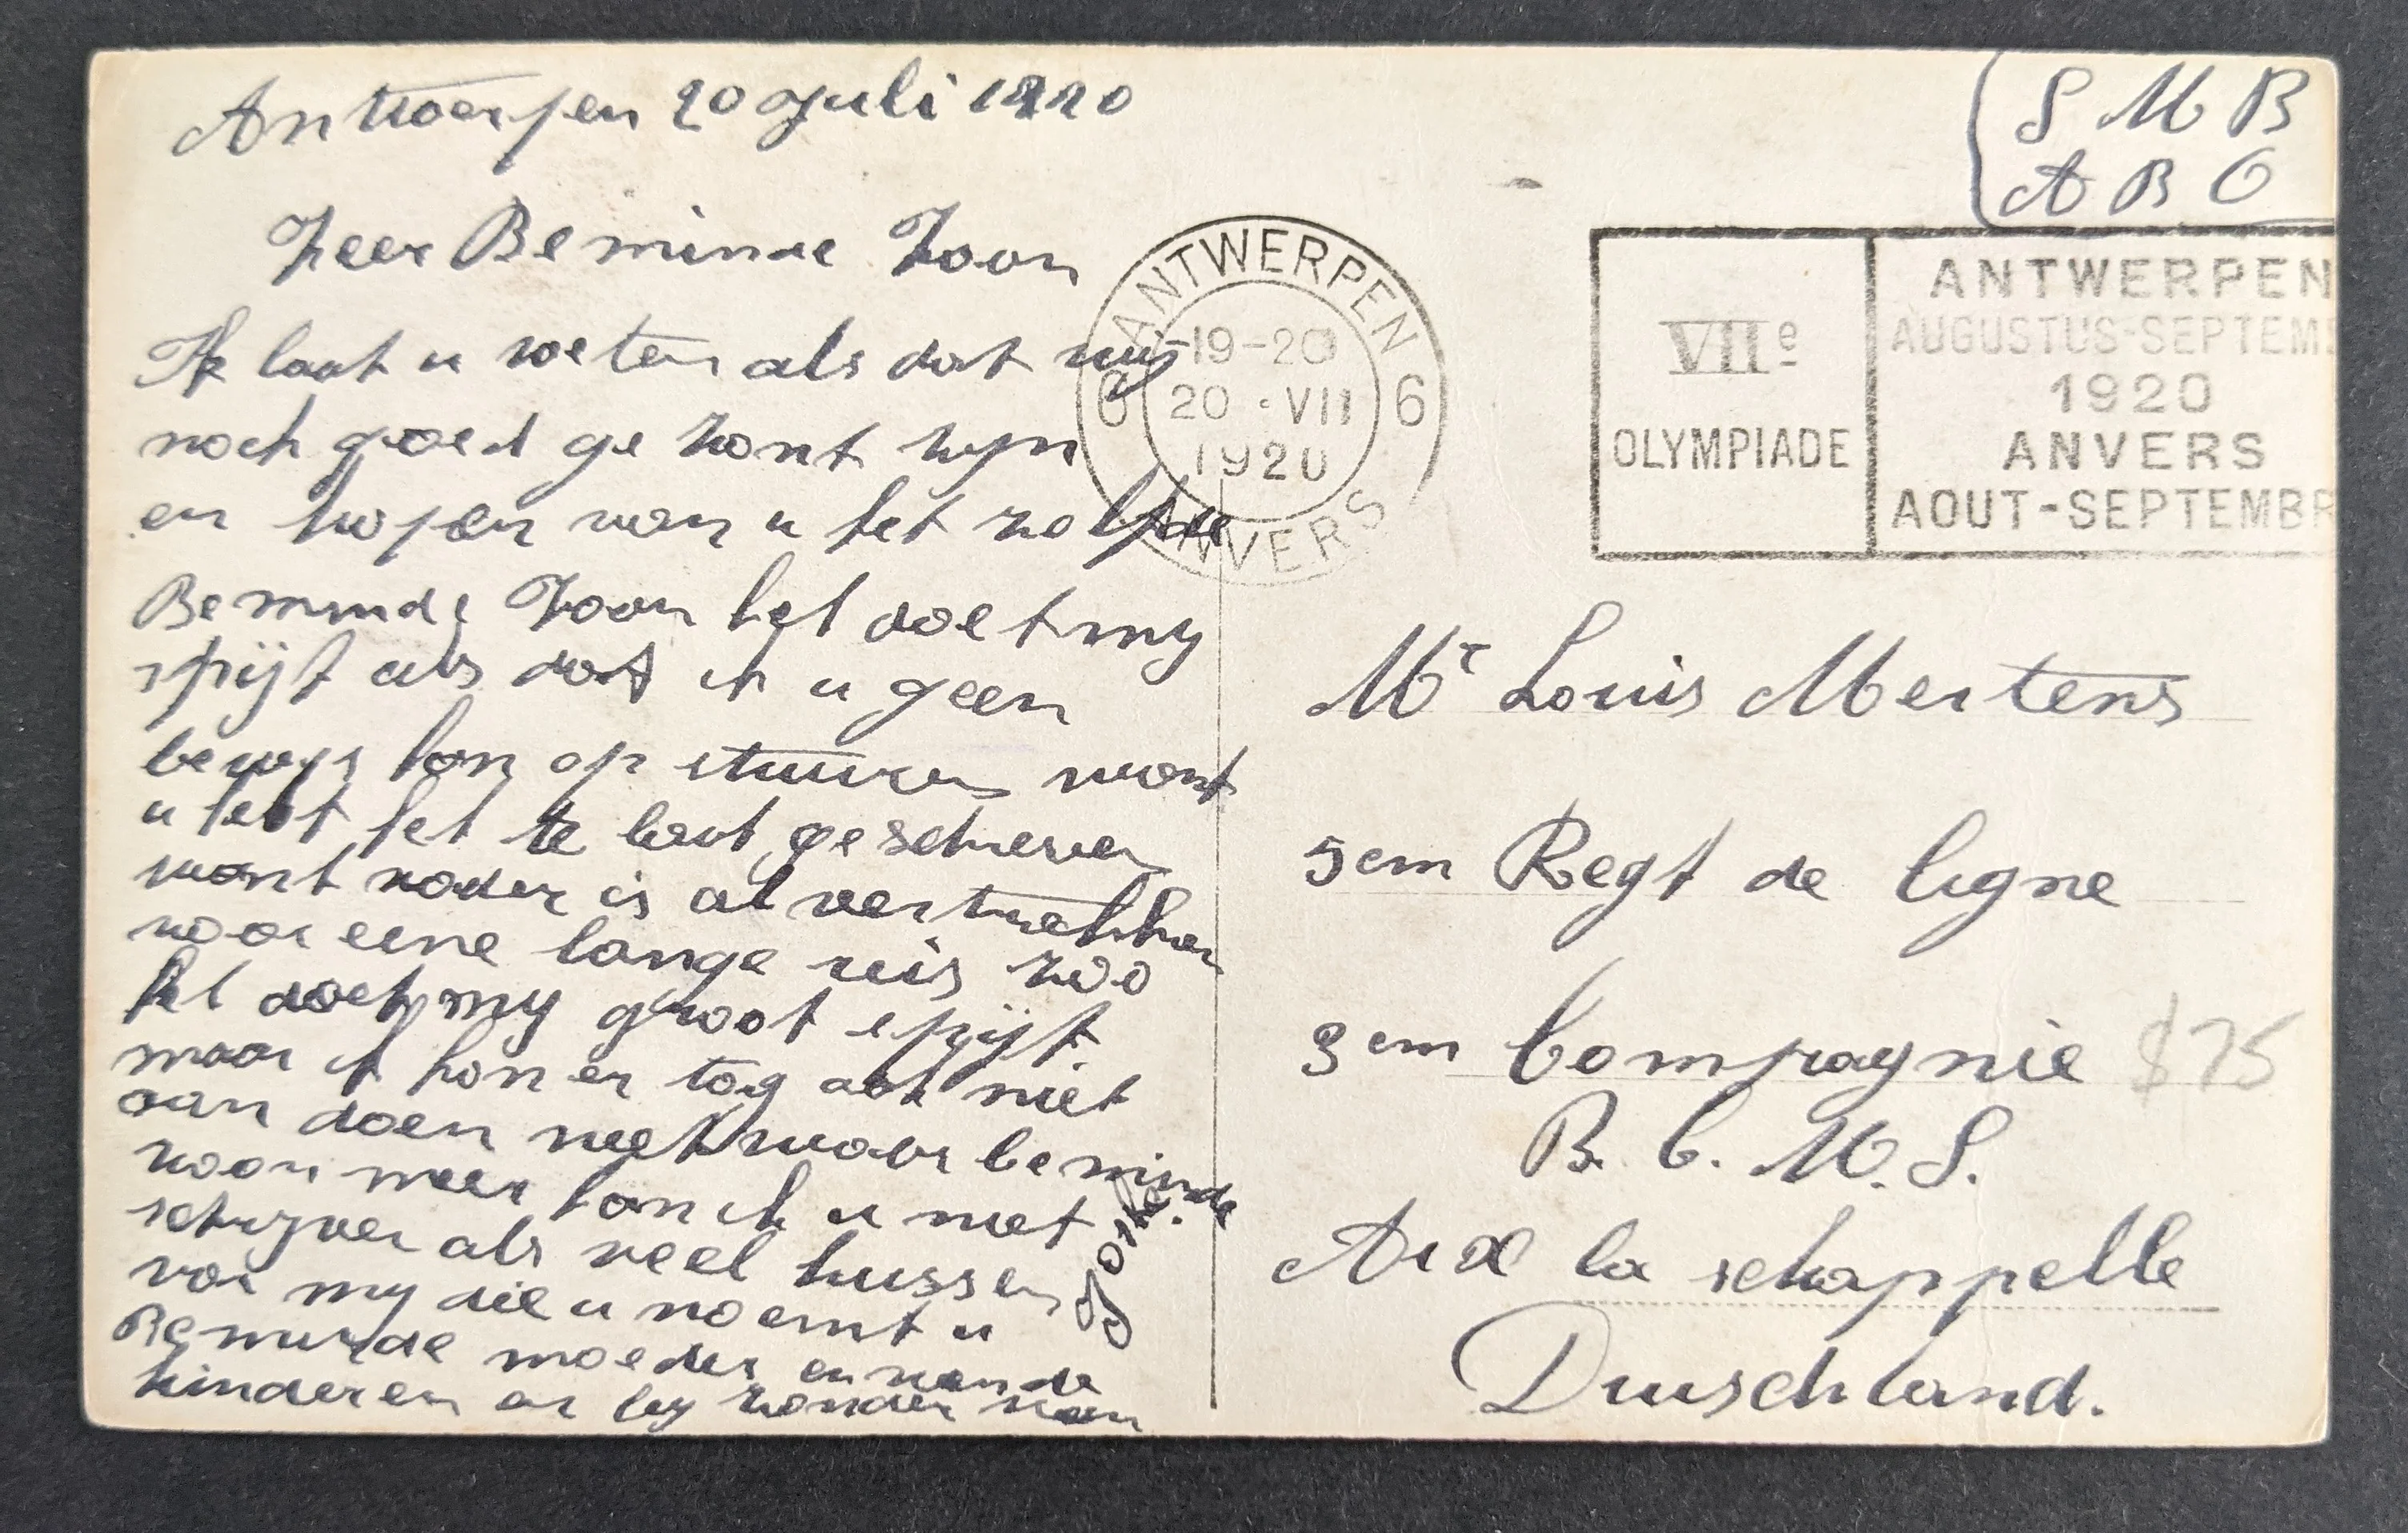 Antwerpen 20 Juli 1920
Zeer Beminde Zoon
Ik laat u weten als dat wij
noch goed ge zont zyn
en hopen van u het zelfde
Beminde Zoon het doet my
spijt als dat ik u geen
bewys kon op stuuren want
u hebt het te laat geschreven
want vader is al vertrokken
voor eene lange reis zoo
het doet my groot spijt
maar ik kon er tog ook niet
aan doen niet waar beminde
zoon meer kan ik u niet
schryven als veel kussen
van my die u noemt u
Beminde moeder en van de
kinderen en by zonder van
S M B
A B O
ANTWERPEN
6 19-20 6
20 · VII
1920
ANVERS
VIIe
OLYMPIADE
ANTWERPEN
AUGUSTUS-SEPTEMB
1920
ANVERS
AOUT-SEPTEMBR
Mr Louis Mertens
5em Regt de ligne
3em Compagnie
$75
B. C. M. S.
Aix la schappelle
Duischland.